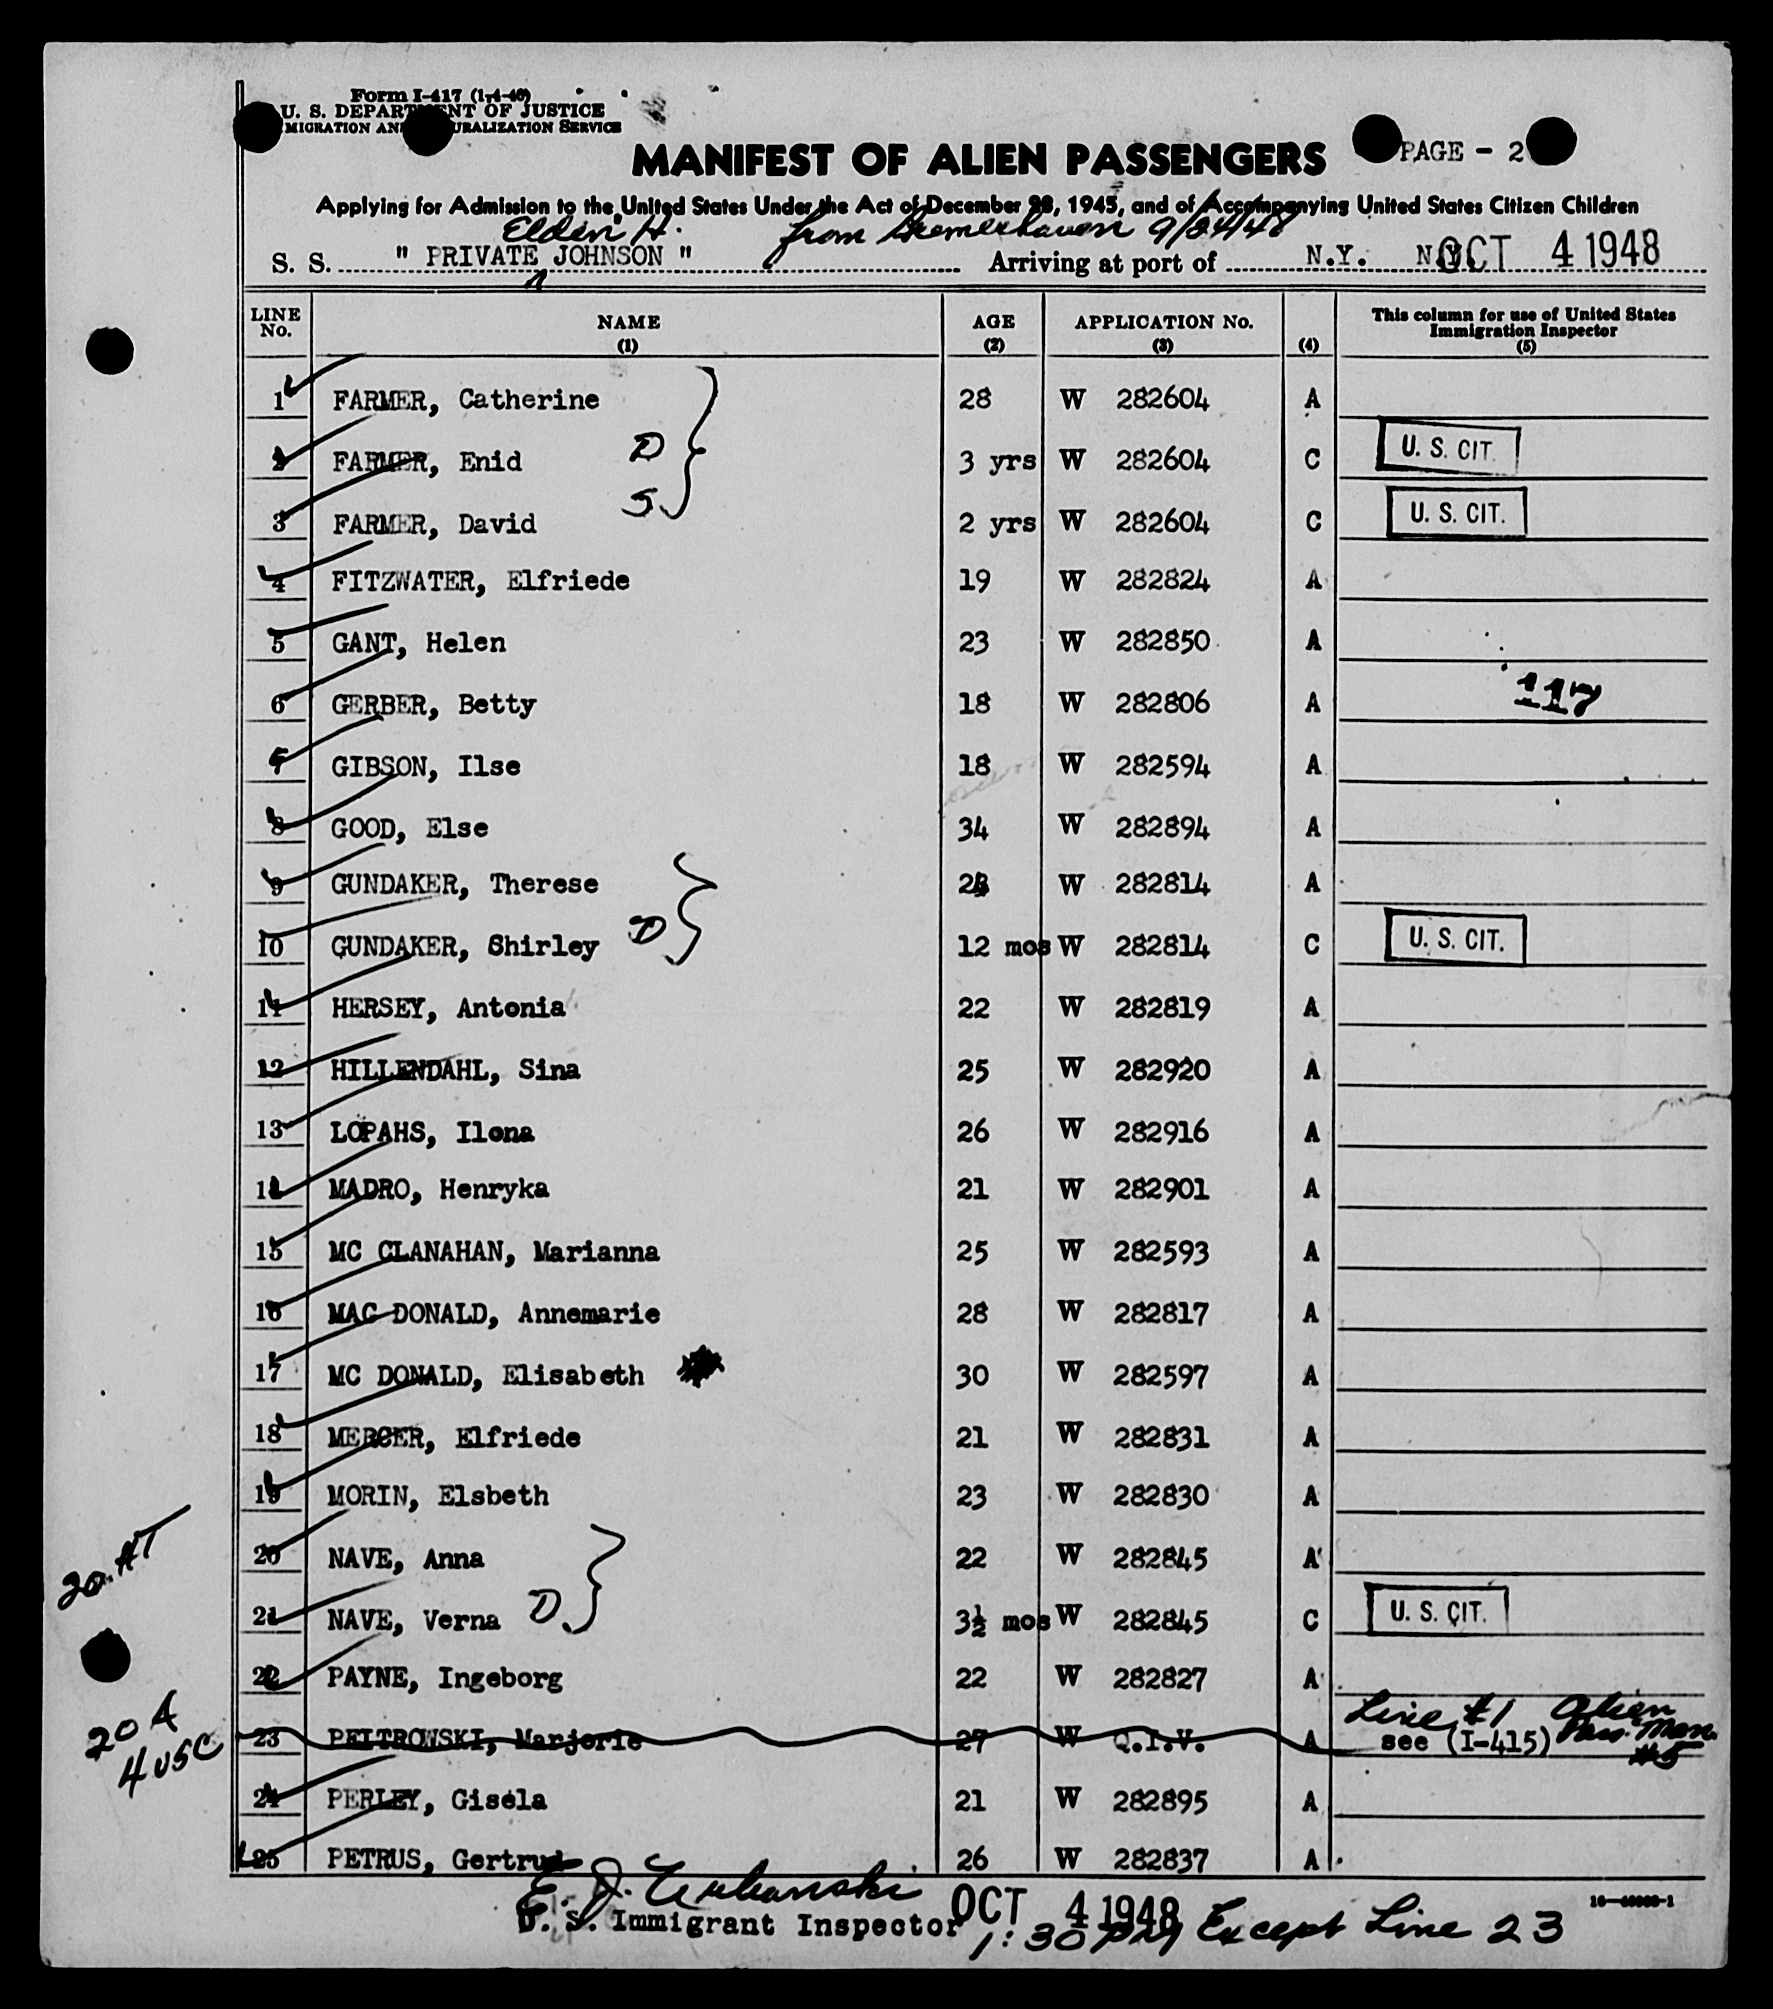 Form I-417 (1-4-46)
U. S. DEPARTMENT OF JUSTICE
IMMIGRATION AND NATURALIZATION SERVICE
PAGE - 2
MANIFEST OF ALIEN PASSENGERS
Applying for Admission to the United States Under the Act of December 28, 1945, and of Accompanying United States Citizen Children
Elden H. from Bremerhaven 9/24/48
S. S. " PRIVATE JOHNSON " Arriving at port of N.Y. N.Y. OCT 4 1948
LINE No. NAME (1) AGE (2) APPLICATION No. (3) (4) This column for use of United States Immigration Inspector (5)
1 FARMER, Catherine 28 W 282604 A
2 FARMER, Enid D 3 yrs W 282604 C U. S. CIT.
3 FARMER, David S 2 yrs W 282604 C U. S. CIT.
4 FITZWATER, Elfriede 19 W 282824 A
5 GANT, Helen 23 W 282850 A
6 GERBER, Betty 18 W 282806 A 117
7 GIBSON, Ilse 18 W 282594 A
8 GOOD, Else 34 W 282894 A
9 GUNDAKER, Therese W 282814 A
10 GUNDAKER, Shirley D 12 mos W 282814 C U. S. CIT.
11 HERSEY, Antonia 22 W 282819 A
12 HILLENDAHL, Sina 25 W 282920 A
13 LOPAHS, Ilona 26 W 282916 A
14 MADRO, Henryka 21 W 282901 A
15 MC CLANAHAN, Marianna 25 W 282593 A
16 MAC DONALD, Annemarie 28 W 282817 A
17 MC DONALD, Elisabeth 30 W 282597 A
18 MERCER, Elfriede 21 W 282831 A
19 MORIN, Elsbeth 23 W 282830 A
20 NAVE, Anna 22 W 282845 A
21 NAVE, Verna D 3½ mos W 282845 C U. S. CIT.
22 PAYNE, Ingeborg 22 W 282827 A
23 PEITROWSKI, Marjorie 27 W Q.I.V. A Line #1 Alien
see (I-415) Pass. Man. #5
24 PERLEY, Gisela 21 W 282895 A
25 PETRUS, Gertrud 26 W 282837 A
20 HT
20 A
4 USC
E. J.
U. S. Immigrant Inspector OCT 4 1948
1:30 PM Except Line 23